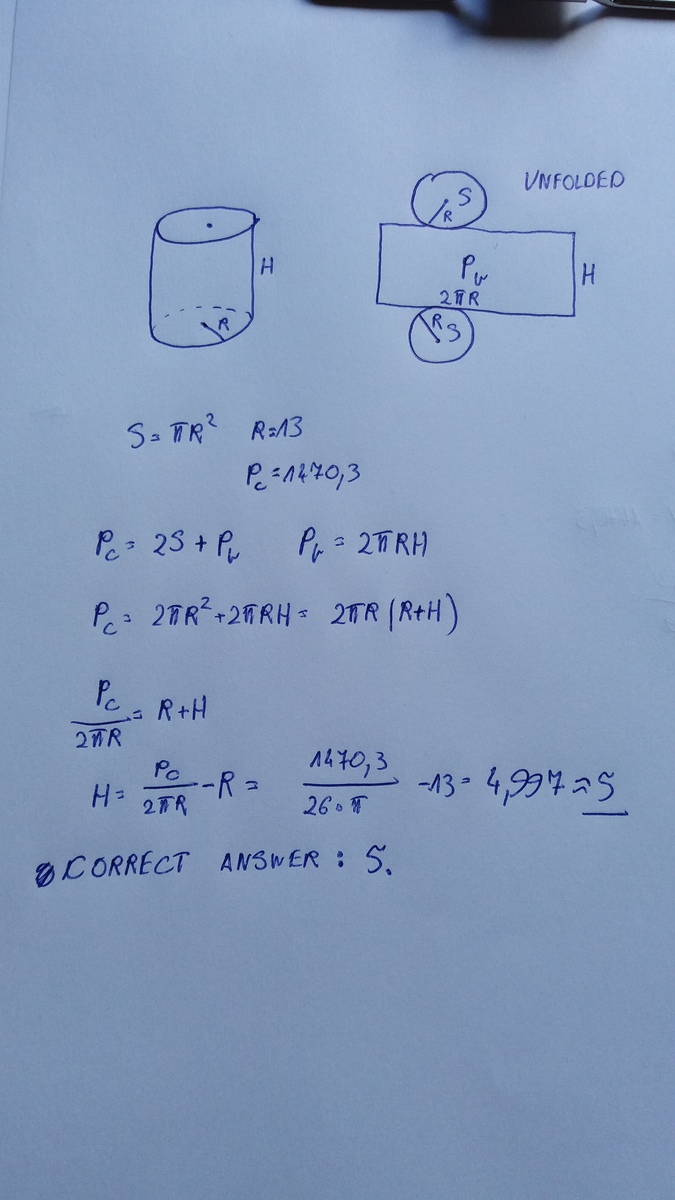 UNFOLDED
S
R
H
P_b
H
2πR
R
R S
S = πR² R=13
P_c = 1470,3
P_c = 2S + P_b P_b = 2πRH
P_c = 2πR² + 2πRH = 2πR (R+H)
P_c / 2πR = R+H
H = P_c / 2πR - R = 1470,3 / 26·π - 13 = 4,997 ≈ 5
CORRECT ANSWER : 5.